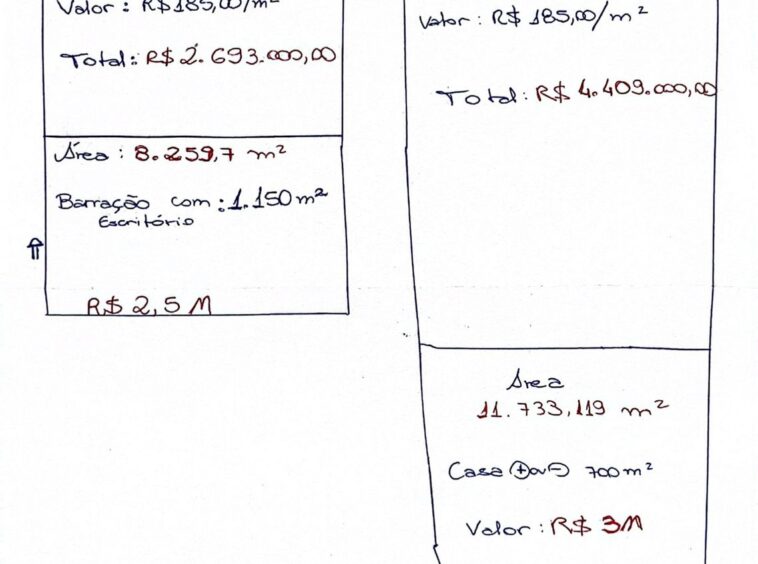 Valor : R$185,00/m²
Total: R$ 2.693.000,00
Área : 8.259,7 m²
Barração com : 1.150m²
Escritório
R$ 2,5 M
Valor : R$ 185,00/m²
Total: R$ 4.409.000,00
Área
11.733,119 m²
Casa + ou - 700m²
Valor : R$ 3M